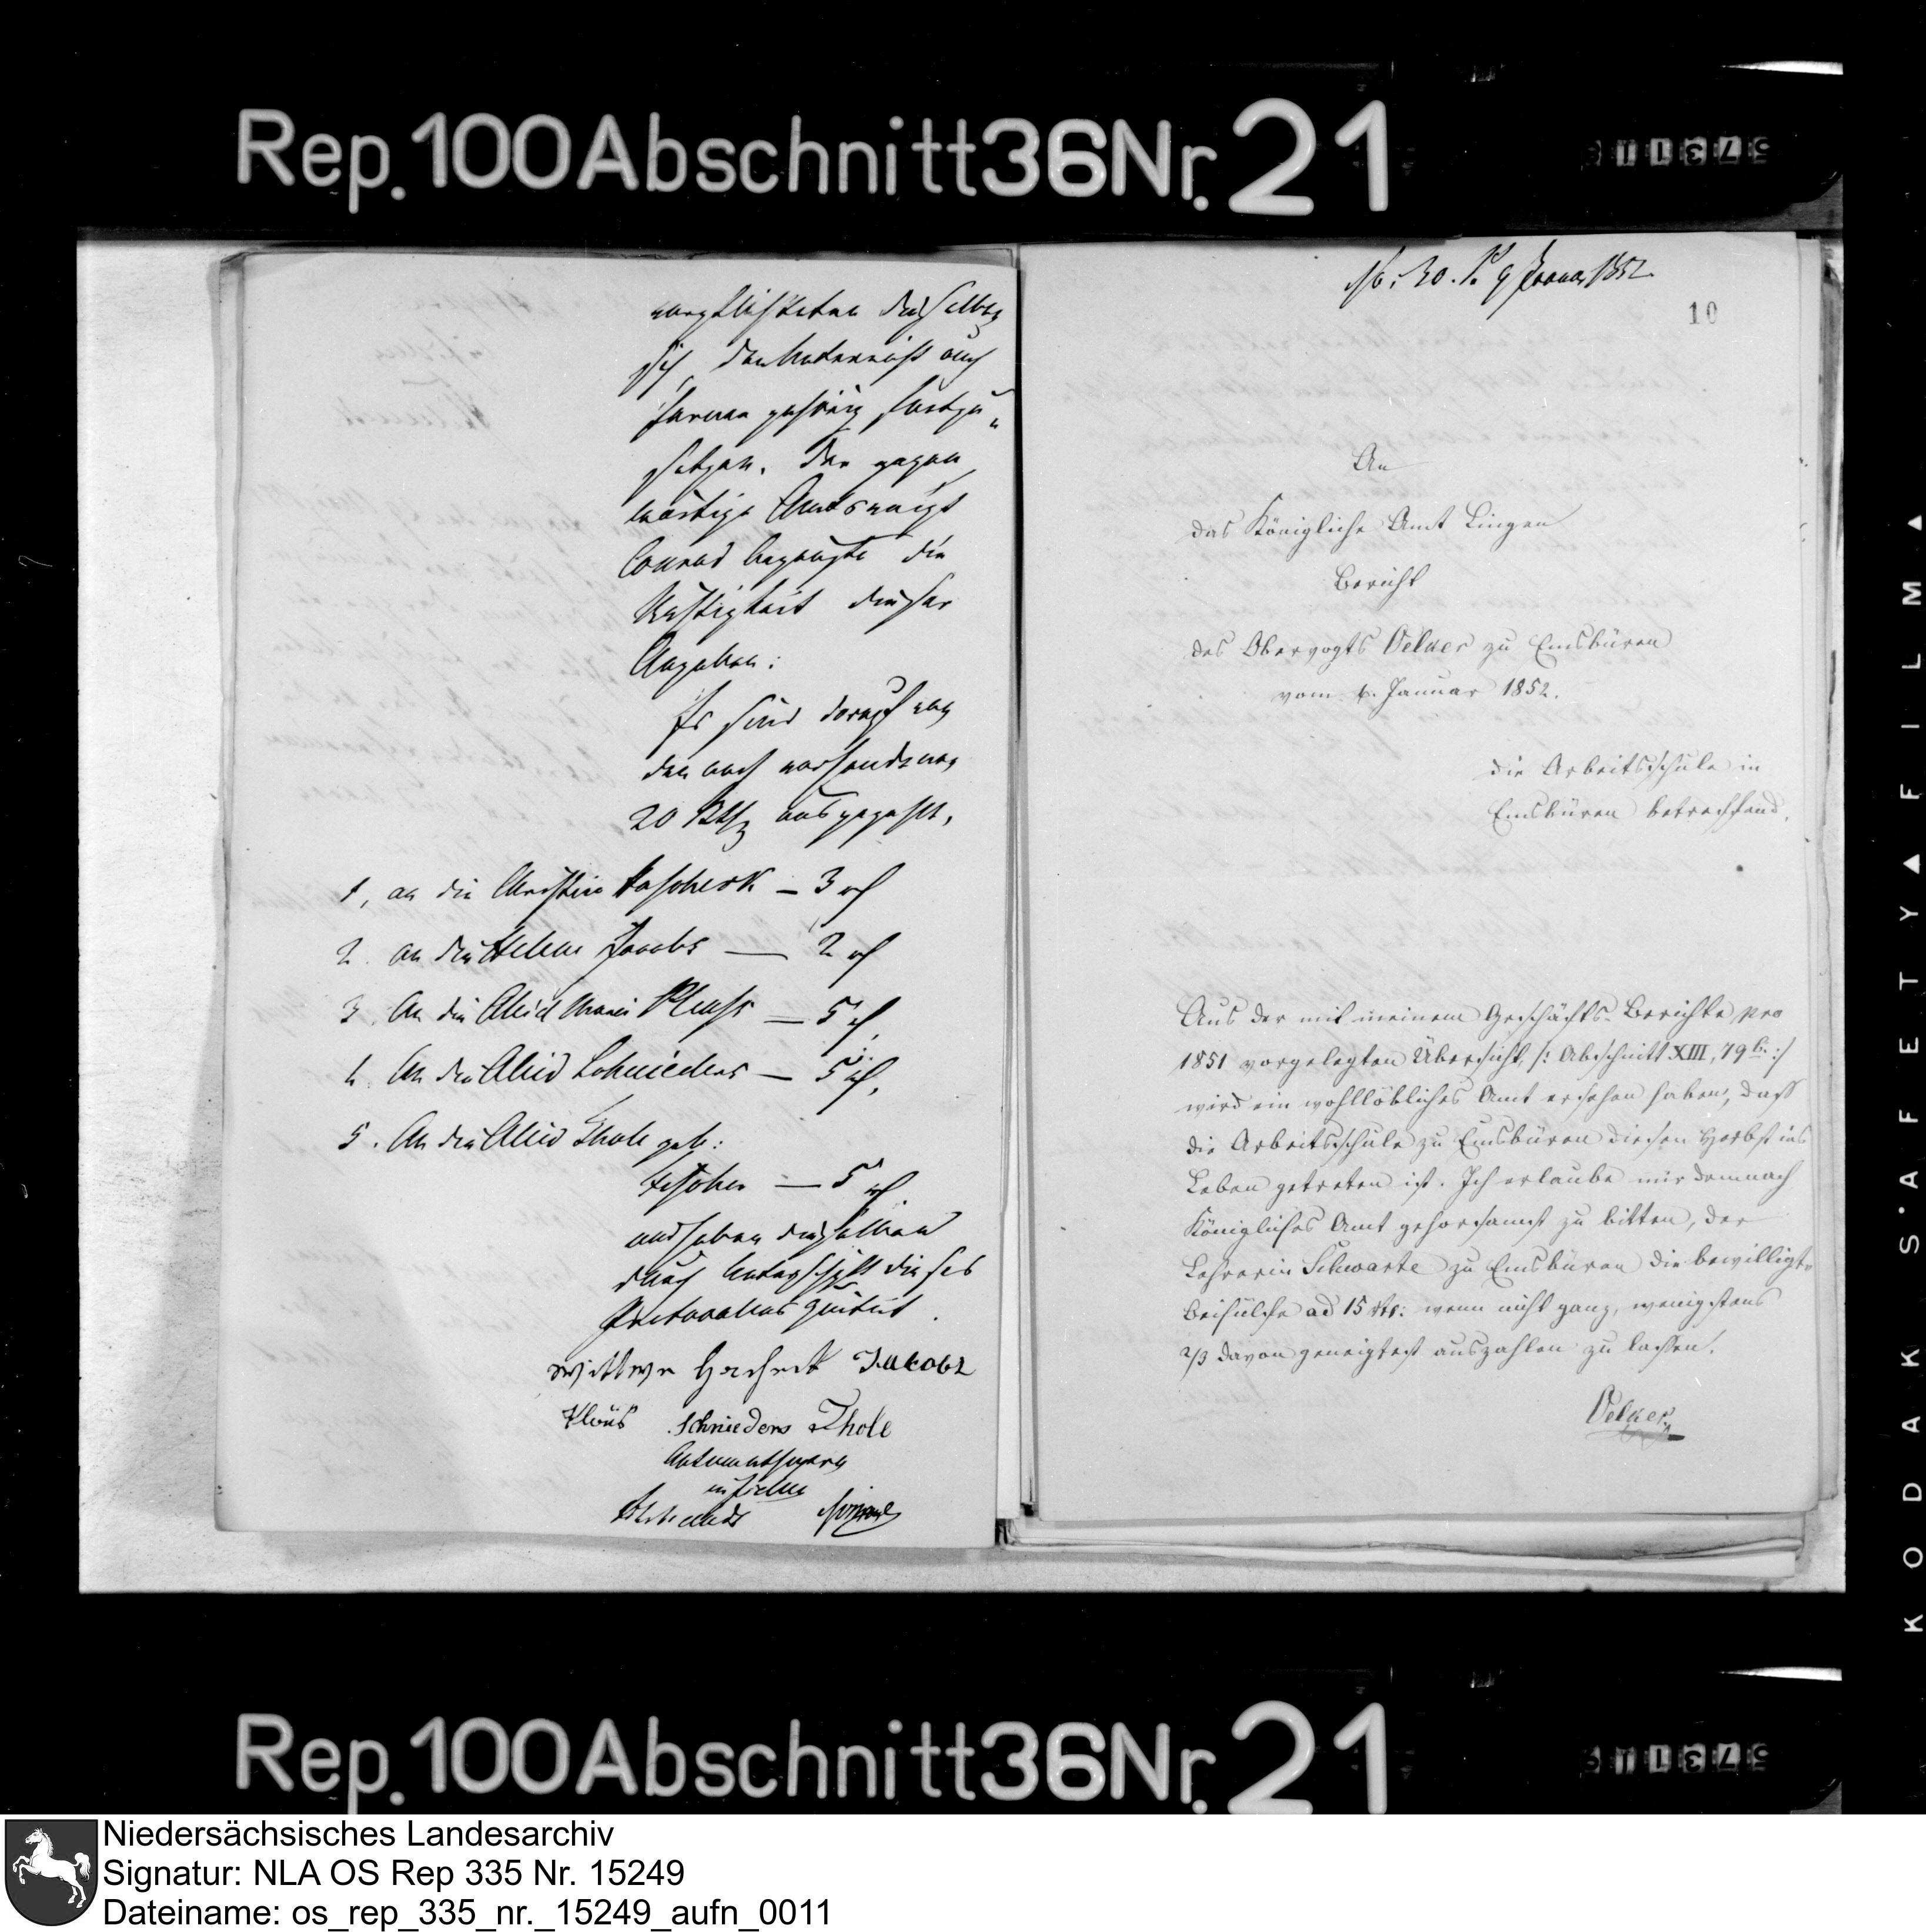 Rep. 100 Abschnitt 36 Nr. 21
verpflichteten dieselben
sich, den Unterricht auch
ferner gehörig fortzu-
setzen. Der gegen-
wärtige Amtsvoigt
Conrad bezeugte die
Richtigkeit dieser
Angaben.
Es sind darauf von
den noch vorhandenen
20 Rth ausgezahlt,
1, an die Christine — 3 rh
2. an die Helene Jacobs — 2 rh
3. An die Aleid Marie — 5 rh
4. An die Aleid Schnieders — 5 rh,
5. An die Aleid Thole geb:
Fischer — 5 rh
und haben dieselben
durch Unterschrift dieses
Protocolles quitirt.
wittwe Gerherd Jakobs
Schnieders Thole
in fidem
10
An
das Königliche Amt Lingen
Bericht
des Obervogts Oelker zu Emsbüren
vom 6. Januar 1852.
die Arbeitsschule in
Emsbüren betreffend.
Aus der mit meinem Geschäfts-Berichte pro
1851 vorgelegten Übersicht, /: Abschnitt XIII, 79 b. :/
wird ein wohllöbliches Amt ersehen haben, daß
die Arbeitsschule zu Emsbüren diesen Herbst ins
Leben getreten ist. Ich erlaube mir demnach
Königliches Amt gehorsamst zu bitten, der
Lehrerin Schwarte zu Emsbüren die bewilligte
Beihülfe ad 15 rtr: wenn nicht ganz, wenigstens
2/3 davon geneigtest auszahlen zu lassen.
Oelker
KODAK S'AFETY▲FILM▲
Rep. 100 Abschnitt 36 Nr. 21
Niedersächsisches Landesarchiv
Signatur: NLA OS Rep 335 Nr. 15249
Dateiname: os_rep_335_nr._15249_aufn_0011